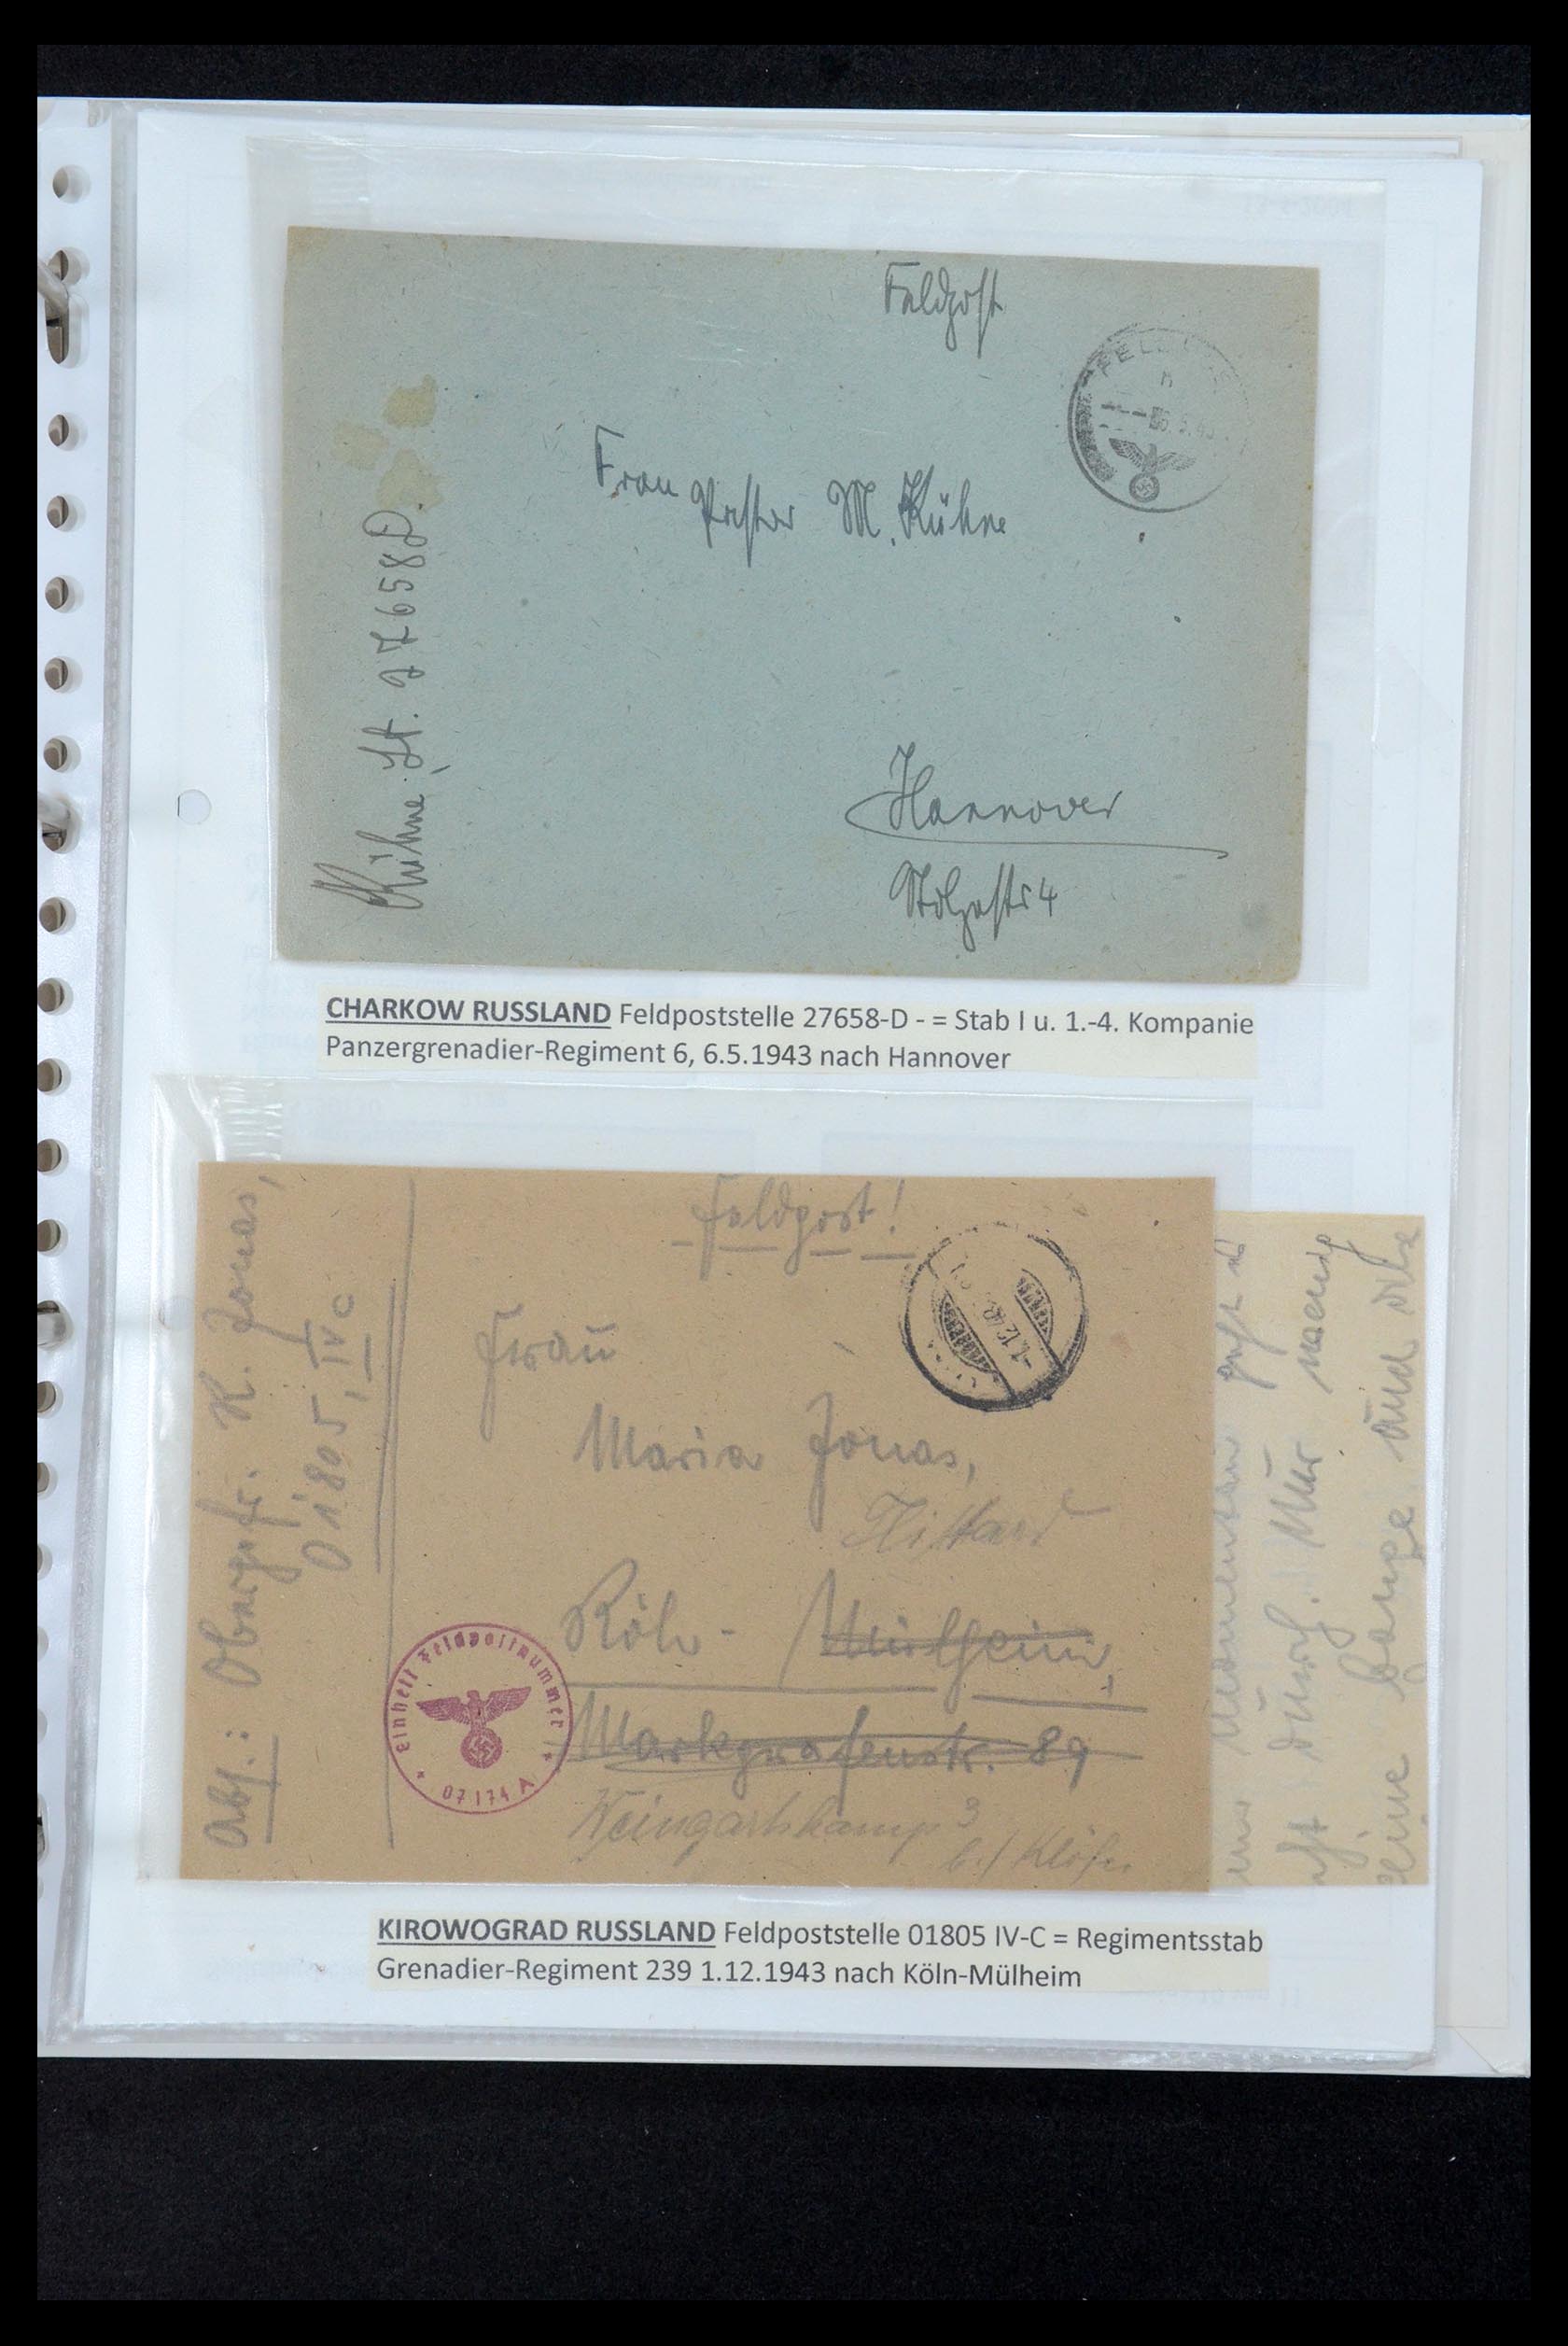 Feldpost
Frau Pastor M. Kühne
Hannover
Stolzestr 4
Kühne, Lt. 27658D.
CHARKOW RUSSLAND Feldpoststelle 27658-D - = Stab I u. 1.-4. Kompanie
Panzergrenadier-Regiment 6, 6.5.1943 nach Hannover
Feldpost!
-1.12.43
Frau
Maria Jonas,
Köln - Mülheim,
Markgrafenstr. 89
Weingartskamp 3
b./
Abs.: Obergefr. K. Jonas,
01805, IVc
Einheit Feldpostnummer
07174 A
KIROWOGRAD RUSSLAND Feldpoststelle 01805 IV-C = Regimentsstab
Grenadier-Regiment 239 1.12.1943 nach Köln-Mülheim